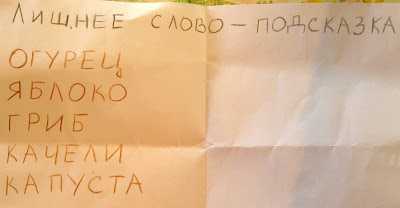 ЛИШНЕЕ СЛОВО - ПОДСКАЗКА
ОГУРЕЦ
ЯБЛОКО
ГРИБ
КАЧЕЛИ
КАПУСТА